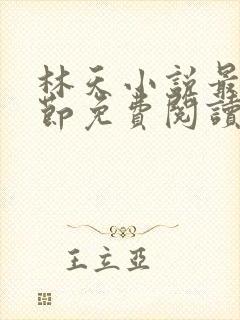 林天小说最
節免費閱讀
王立亞